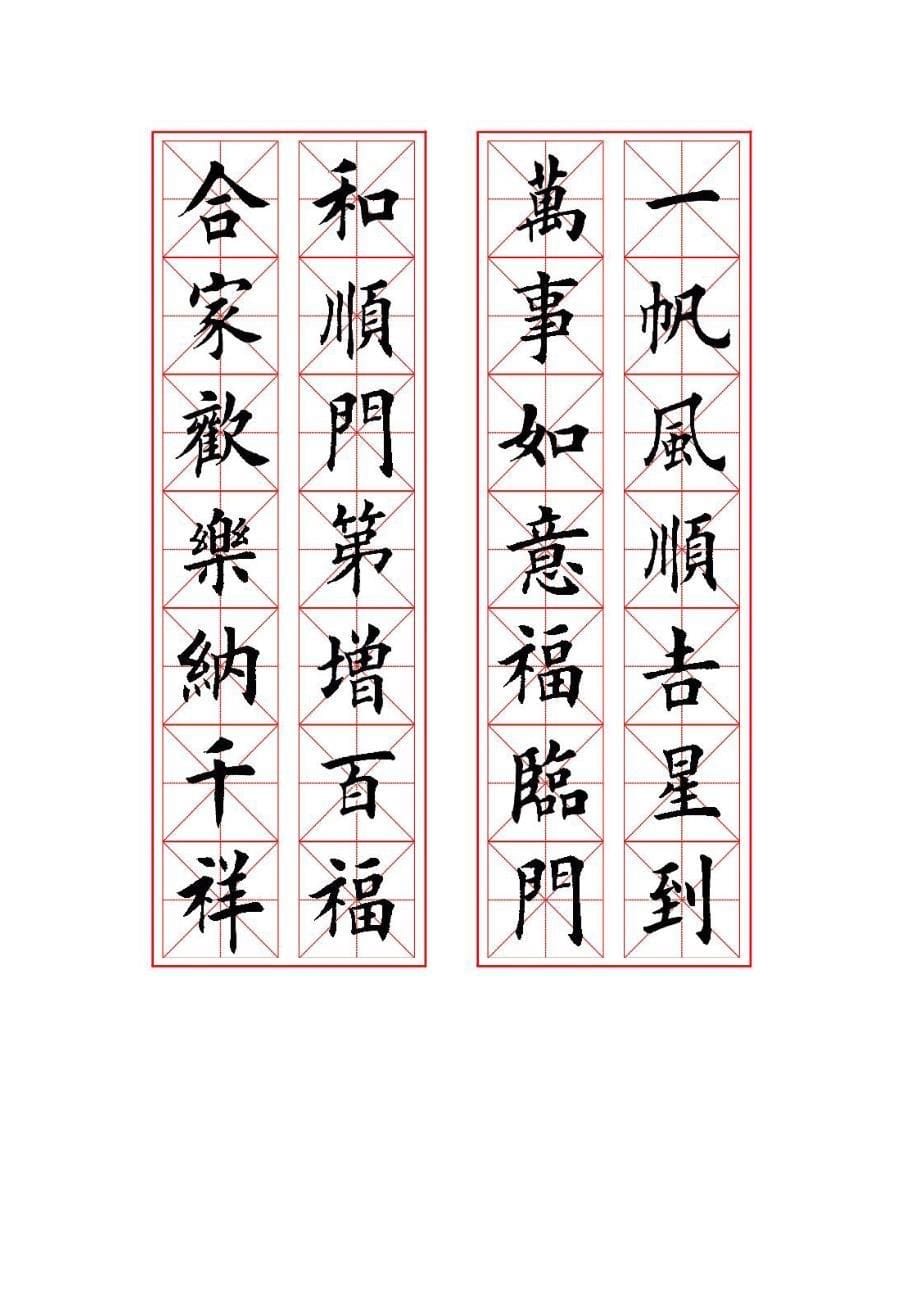 一帆風順吉星到
萬事如意福臨門
和順門第增百福
合家歡樂納千祥